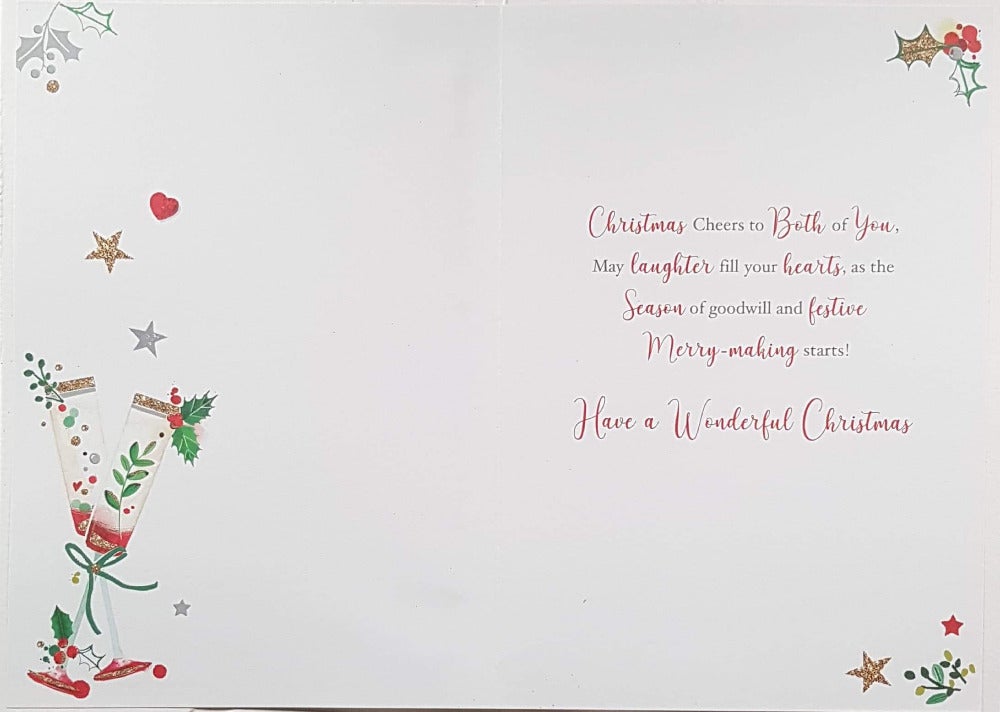 Christmas Cheers to Both of You,
May laughter fill your hearts, as the
Season of goodwill and festive
Merry-making starts!
Have a Wonderful Christmas